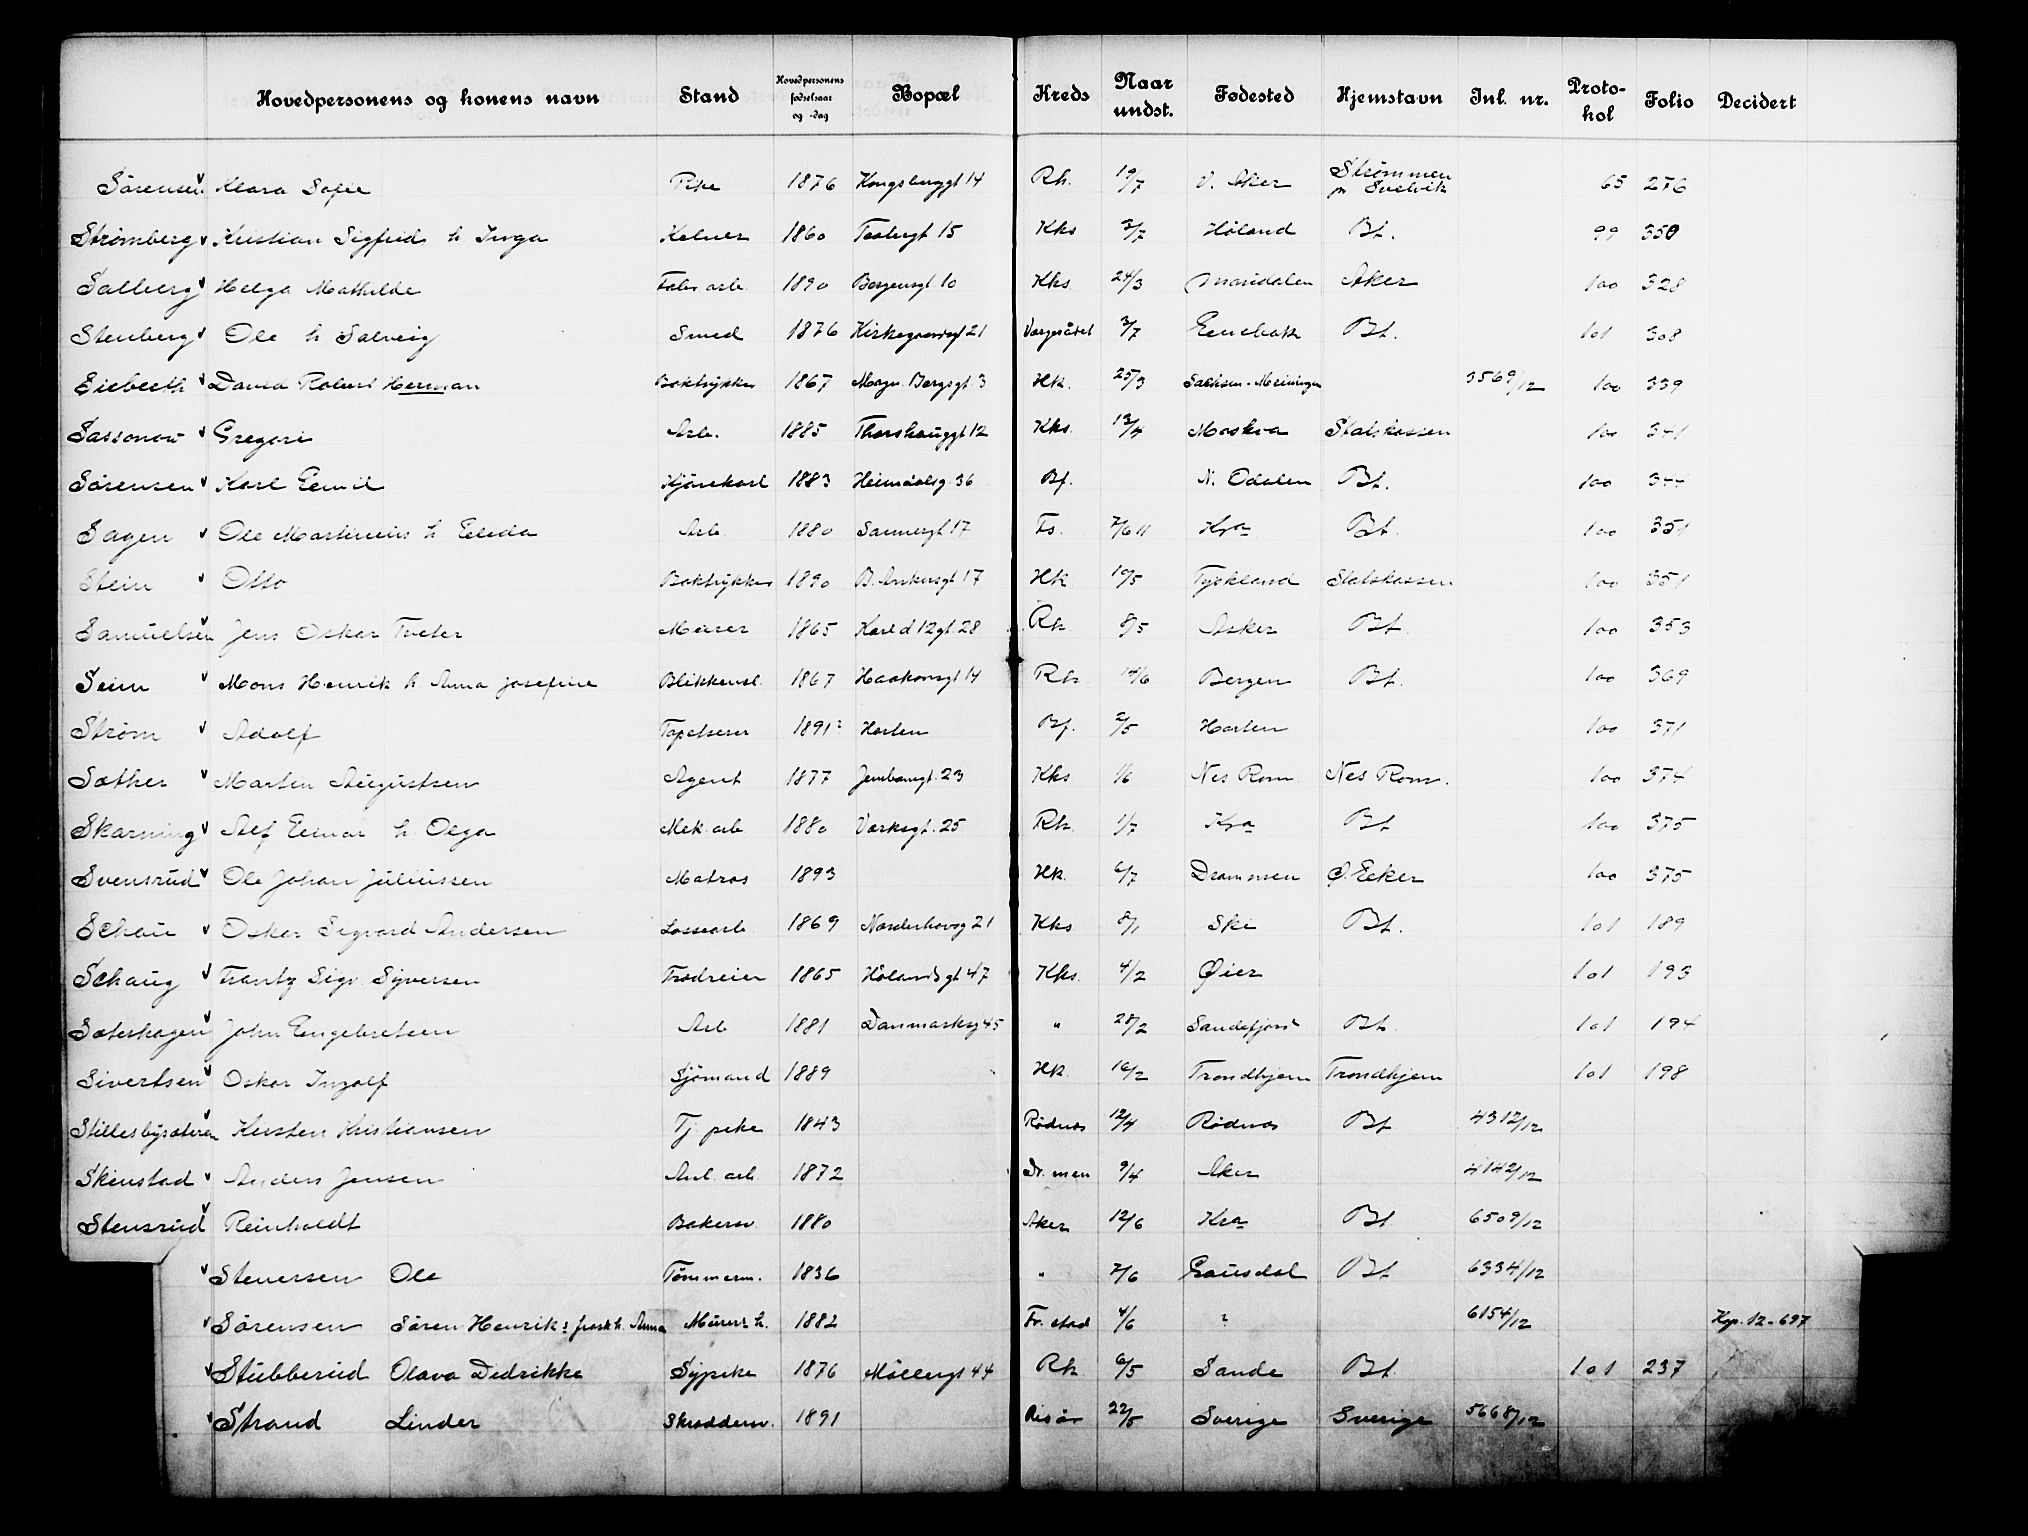 Hovedpersonens og konens navn | Stand | Hovedpersonens fødselsaar og -dag | Bopæl | Kreds | Naar undst. | Fødested | Hjemstavn | Inl. nr. | Proto-kol | Folio | Decidert
Sørensen Klara Sofie | Pike | 1876 | Kongsberggt 14 | Rk. | 19/7 | V. Aker | Strømmen pr Svelvik | 65 | 276
Strømberg Kristian Sigfrid h Inga | Kelner | 1860 | Tostrgt 15 | Kks | 3/7 | Høland | Bt. | 99 | 350
Salberg Helga Mathilde | Fabr arb. | 1890 | Bergensgt 10 | Kks | 24/3 | Maridalen | Aker | 100 | 328
Stenberg Ole h Solveig | Smed | 1876 | Kirkegaardsgt 21 | Vergerådet | 3/7 | Enebak | Bt. | 101 | 308
Eiebeeth David Robert Herman | Boktrykker | 1867 | Magn. Bergsgt 3 | Hk. | 25/3 | Sachsen-Meiningen | 3569/12 | 100 | 339
Sassonow Gregori | Arb. | 1885 | Thorshauggt 12 | Kks. | 12/4 | Moskva | Statskassen | 100 | 341
Sørensen Karl Emil | Kjørekarl | 1883 | Heimdalsg. 36 | Bf. | N. Odalen | Bt. | 100 | 344
Sagen Ole Martinius h Elida | Arb. | 1880 | Sannergt 17 | Fs. | 7/6 11 | Kra | Bt. | 100 | 351
Stein Otto | Boktrykker | 1890 | B. Ankersgt 17 | Hk | 10/5 | Tyskland | Statskassen | 100 | 351
Samuelsen Jens Oskar Tveter | Murer | 1865 | Karl d 12 gt. 28 | Rk | 8/5 | Asker | Bt. | 100 | 353
Seim Mons Henrik h. Anna Josefine | Blikkensl. | 1867 | Haakonsgt 14 | Rk | 14/6 | Bergen | Bt. | 100 | 369
Strøm Adolf | Tapetserer | 1891? | Horten | Bf. | 2/5 | Horten | 100 | 371
Sæther Marten Augustsen | Agent | 1877 | Jernbanegt. 23 | Kks | 1/6 | Nes Rom. | Nes Rom. | 100 | 374
Skarning Alf Einar h. Olga | Mek. arb | 1880 | Verksgt. 25 | Rk. | 1/7 | Kra | Bt | 100 | 375
Svensrud Ole Johan Juliussen | Matros | 1893 | Hk. | 6/7 | Drammen | Ø. Eker | 100 | 375
Schau Oskar Sigvard Andersen | Lossearb. | 1869 | Norderhovsg 21 | Kks | 8/1 | Ski | Bt. | 101 | 189
Schaug Frantz Sigv. Syversen | Trædreier | 1865 | Hølandsgt 47 | Kks. | 4/2 | Øier | 101 | 193
Sæterhagen John Engebretsen | Arb | 1881 | Danmarksg 45 | " | 28/2 | Sandefjord | Bt. | 101 | 194
Sivertsen Oskar Ingolf | Sjømand | 1889 | Hk. | 16/2 | Trondhjem | Trondhjem | 101 | 198
Stillesbysæteren Kirsten Kristiansen | Tj. pike | 1843 | Rødnæs | 12/4 | Rødnæs | Bt | 4312/12
Skinstad Anders Jensen | Anl. arb. | 1872 | Dr.men | 9/4 | Aker | 4142/12
Stensrud Reinholdt | Bakersv. | 1880 | Aker | 12/6 | Kra | Bt | 6509/12
Stenersen Ole | Tømmerm. | 1836 | " | 7/6 | Gausdal | Bt | 6334/12
Sørensen Søren Henriks frask h. Anna | Murers h. | 1882 | Fr.stad | 4/6 | ? | 6154/12 | Kop. 12-697
Stubberud Olava Didrikke | Sypike | 1876 | Møllergt 44 | Rk | 6/5 | Sande | Bt. | 101 | 237
Strand Linder | Skræddersv. | 1891 | Risør | 22/5 | Sverige | Sverige | 5668/12